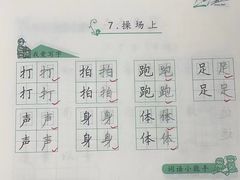 7.操场上
我爱写字
打 打 拍 拍 跑 跑 足 足
打 打 拍 拍 跑 跑 足 足
声 声 身 身 体 体
声 声 身 身 体 体
词语小能手